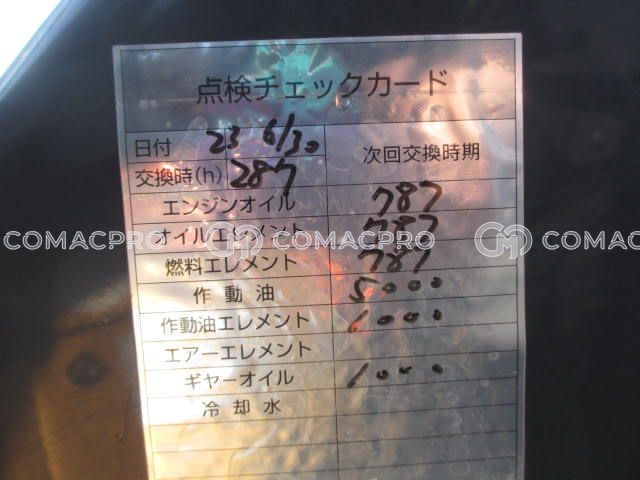 点検チェックカード
日付 23 6/30 次回交換時期
交換時(h) 287
エンジンオイル 787
オイルエレメント 787
COMACPRO COMACPRO COMACPRO
燃料エレメント 787
作動油 5000
作動油エレメント 1000
エアーエレメント
ギヤーオイル 1000
冷却水